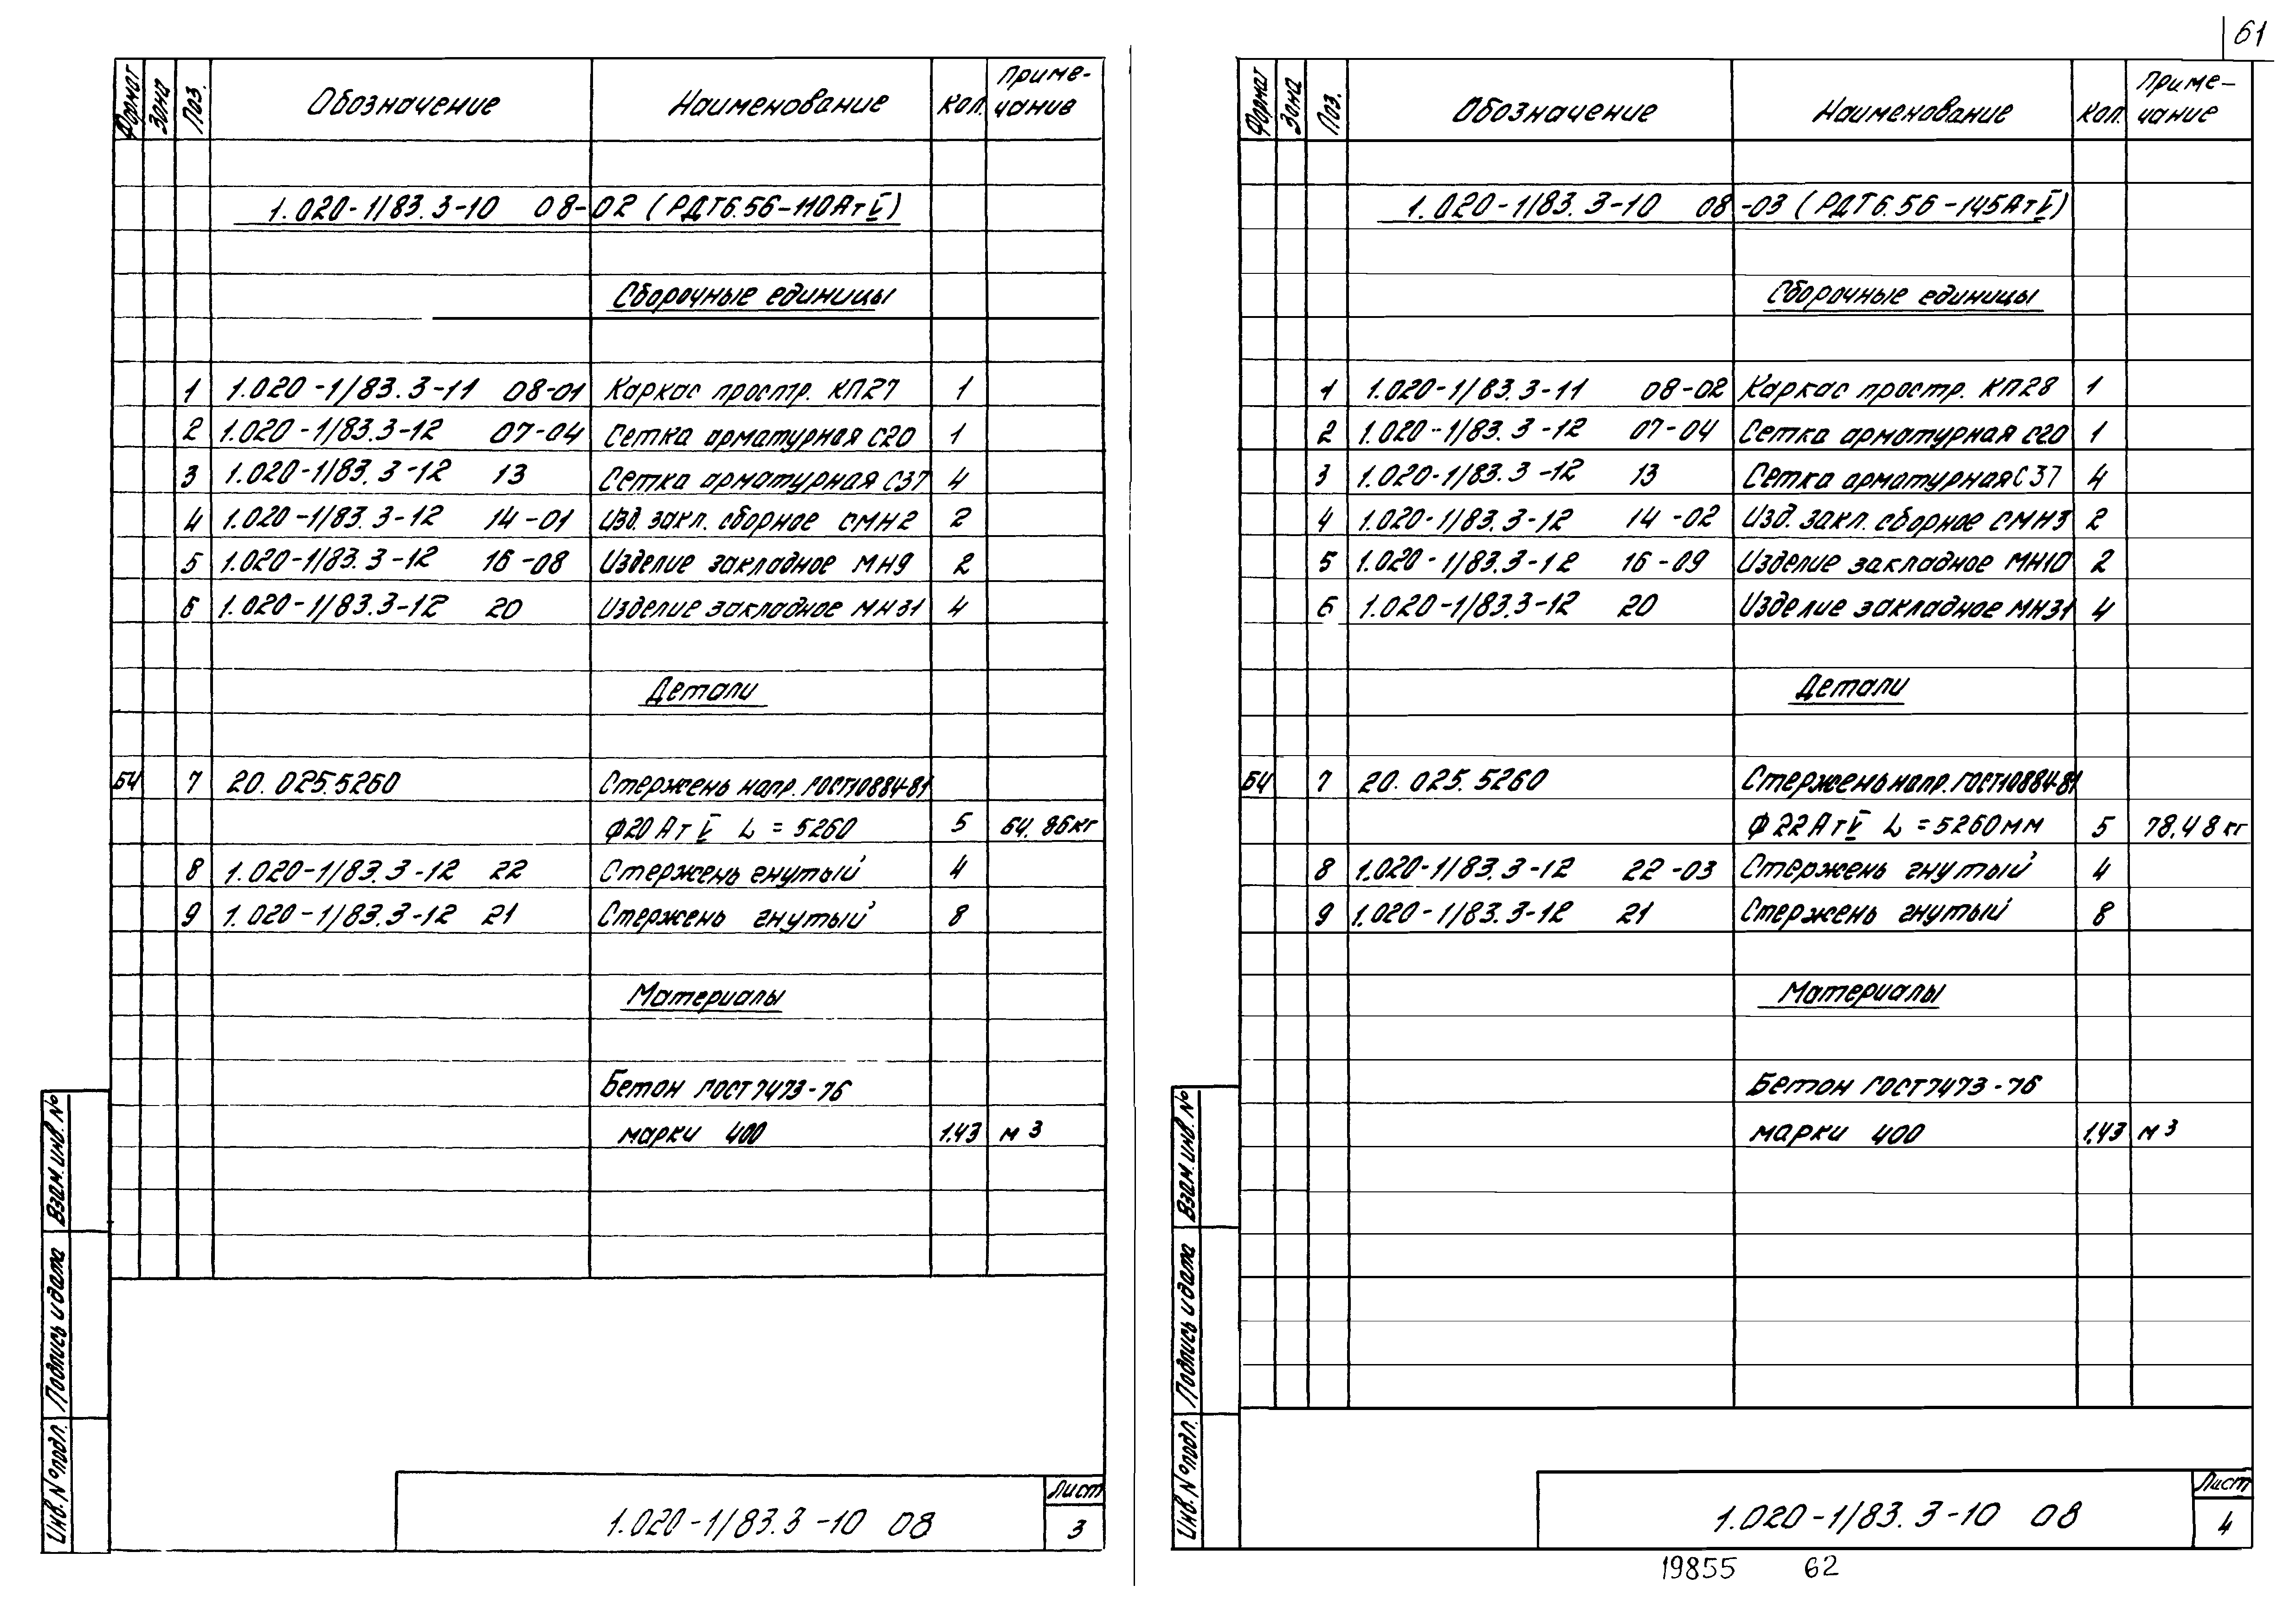 61
Формат Зона Поз. Обозначение Наименование Кол. Приме-
чание
1.020-1/83.3-10 08-02 (РДТ6.56-110АтV)
Сборочные единицы
1 1.020-1/83.3-11 08-01 Каркас простр. КП27 1
2 1.020-1/83.3-12 07-04 Сетка арматурная С20 1
3 1.020-1/83.3-12 13 Сетка арматурная С37 4
4 1.020-1/83.3-12 14-01 Изд. закл. сборное СМН2 2
5 1.020-1/83.3-12 16-08 Изделие закладное МН9 2
6 1.020-1/83.3-12 20 Изделие закладное МН31 4
Детали
БЧ 7 20.025.5260 Стержень напр. ГОСТ10884-81
Ф20АтV L=5260 5 64.86кг
8 1.020-1/83.3-12 22 Стержень гнутый 4
9 1.020-1/83.3-12 21 Стержень гнутый 8
Материалы
Бетон ГОСТ7473-76
марки 400 1,43 м3
Взам. инв. №
Подпись и дата
Инв. № подл.
1.020-1/83.3-10 08
Лист
3
Формат Зона Поз. Обозначение Наименование Кол. Приме-
чание
1.020-1/83.3-10 08-03 (РДТ6.56-145АтV)
Сборочные единицы
1 1.020-1/83.3-11 08-02 Каркас простр. КП28 1
2 1.020-1/83.3-12 07-04 Сетка арматурная С20 1
3 1.020-1/83.3-12 13 Сетка арматурная С37 4
4 1.020-1/83.3-12 14-02 Изд. закл. сборное СМН3 2
5 1.020-1/83.3-12 16-09 Изделие закладное МН10 2
6 1.020-1/83.3-12 20 Изделие закладное МН31 4
Детали
БЧ 7 20.025.5260 Стержень напр. ГОСТ10884-81
Ф22АтV L=5260мм 5 78,48кг
8 1.020-1/83.3-12 22-03 Стержень гнутый 4
9 1.020-1/83.3-12 21 Стержень гнутый 8
Материалы
Бетон ГОСТ7473-76
марки 400 1,43 м3
Взам. инв. №
Подпись и дата
Инв. № подл.
1.020-1/83.3-10 08
Лист
4
19855 62